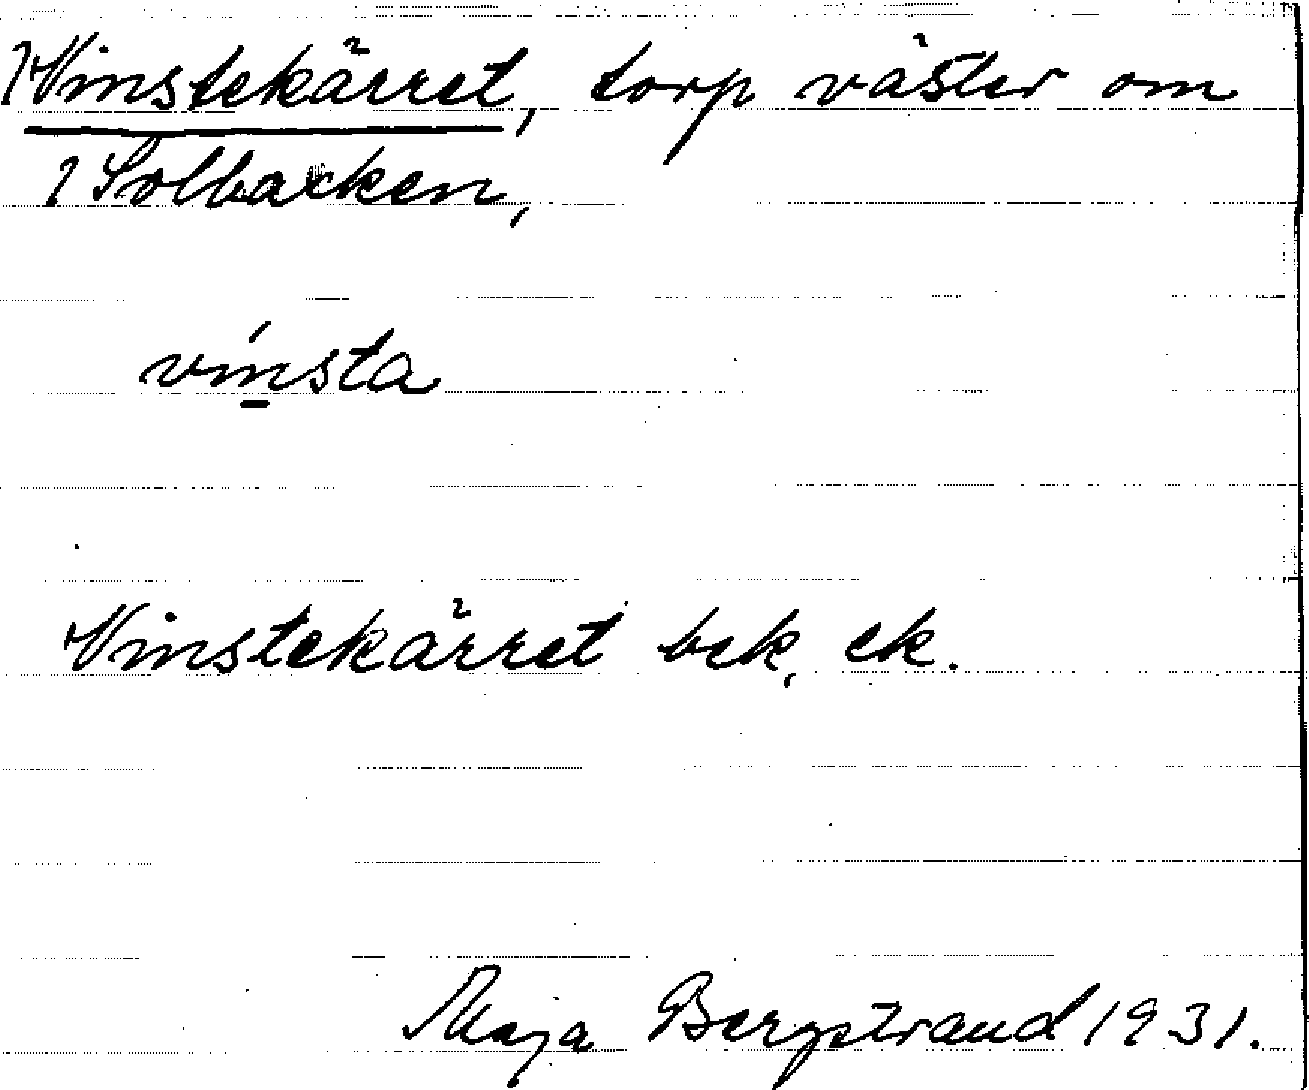 Vinstekärret, torp väster om
Solbacken,
vínsta
Vinstekärret bek, ek.
Maja Bergstrand 1931.